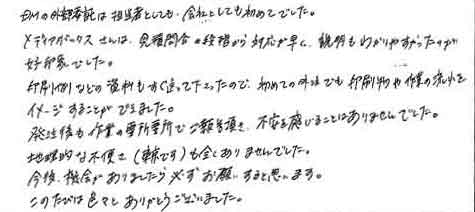 DMの外部委託は担当者としても、会社としても初めてでした。
メディアボックスさんは、見積問合の段階から対応が早く、説明もわかりやすかったのが
好印象でした。
印刷例などの資料もすぐ送って下さったので、初めての外注でも印刷物や作業の流れを
イメージすることができました。
発注後も作業の要所要所でご報告頂き、不安を感じることはありませんでした。
地理的な不便さ(東京です)も全くありませんでした。
今後、機会がありましたら必ずお願いすると思います。
このたびは色々とありがとうございました。